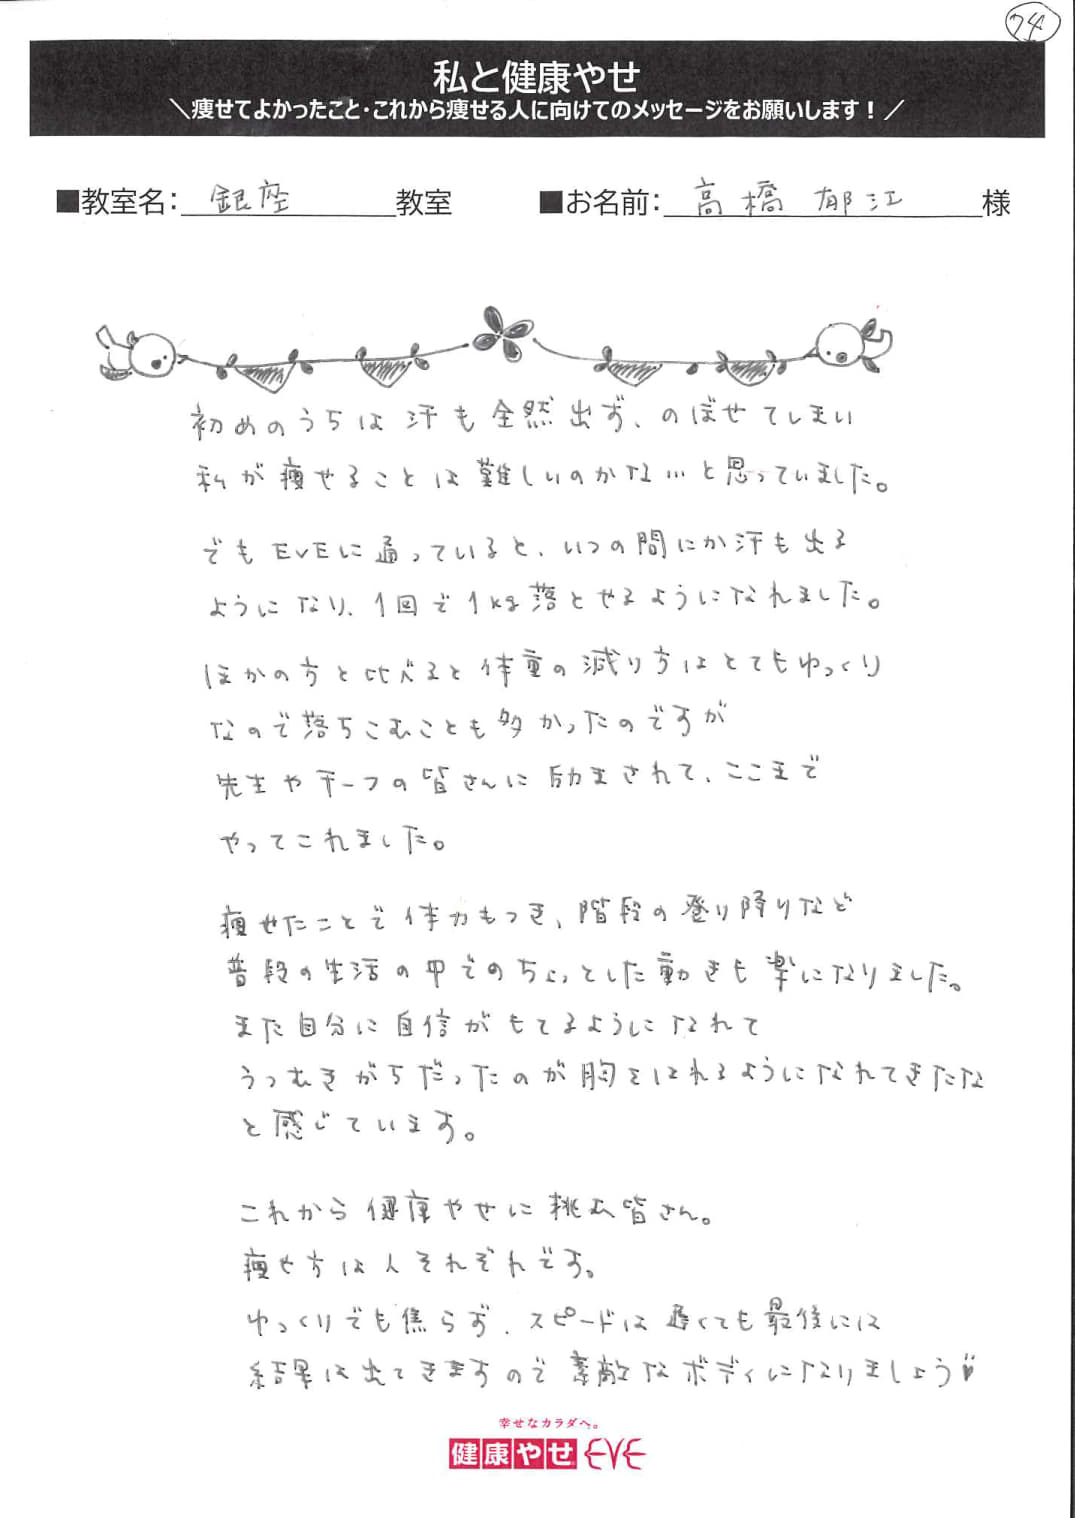 74
私と健康やせ
＼痩せてよかったこと・これから痩せる人に向けてのメッセージをお願いします！／
■教室名：銀座教室 ■お名前：高橋 郁江様
初めのうちは汗も全然出ず、のぼせてしまい
私が痩せることは難しいのかな…と思っていました。
でもEVEに通っていると、いつの間にか汗も出る
ようになり、1回で1kg落とせるようになれました。
ほかの方と比べると体重の減り方はとてもゆっくり
なので落ちこむことも多かったのですが
先生やチーフの皆さんに励まされて、ここまで
やってこれました。
痩せたことで体力もつき、階段の登り降りなど
普段の生活の中でのちょっとした動きも楽になりました。
また自分に自信がもてるようになれて
うつむきがちだったのが胸をはれるようになれてきたな
と感じています。
これから健康やせに挑む皆さん。
痩せ方は人それぞれです。
ゆっくりでも焦らず、スピードは遅くても最後には
結果は出てきますので素敵なボディになりましょう♥
幸せなカラダへ。
健康やせEVE